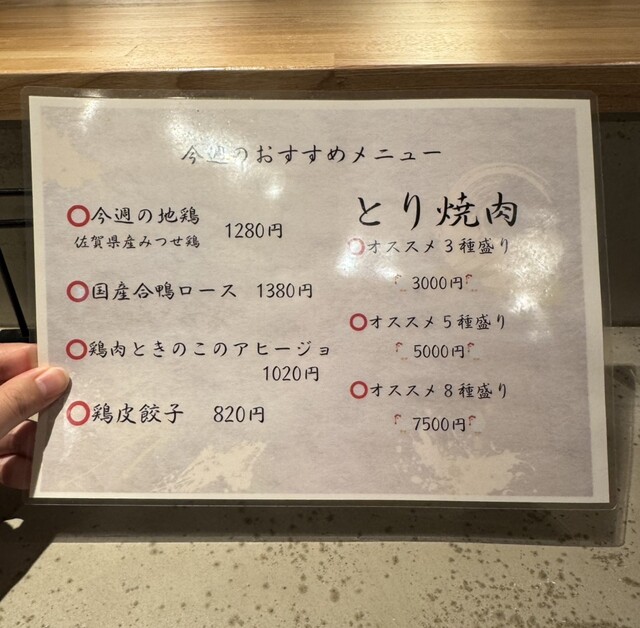 今週のおすすめメニュー
○今週の地鶏 1280円
佐賀県産みつせ鶏
○国産合鴨ロース 1380円
○鶏肉ときのこのアヒージョ
1020円
○鶏皮餃子 820円
とり焼肉
○オススメ3種盛り
3000円
○オススメ5種盛り
5000円
○オススメ8種盛り
7500円